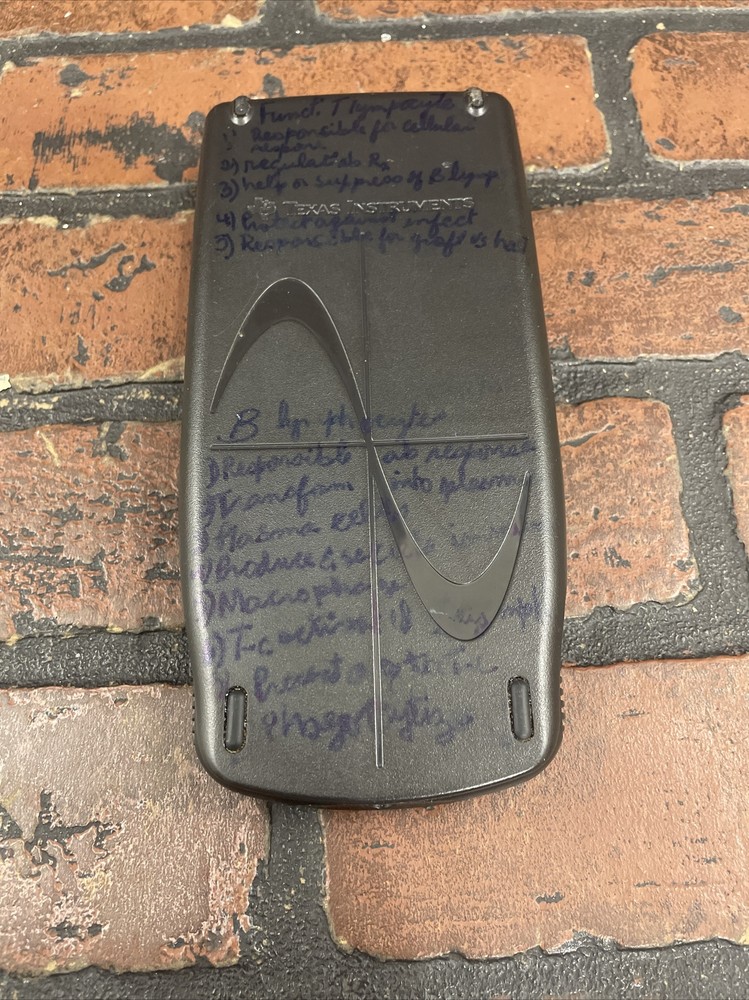 Funct. T lympocyte
1) Responsible for cellular
respons
2) regulat ab Rx
3) help or suppress of B lymp
TEXAS INSTRUMENTS
4) Protect against infect
5) Responsible for graft vs hos
B lymphocytes
1) Responsible ab response
2) Transform into plasm
3) Plasma cells
4) Produce & secrete
5) Macrophage
6) T-c
Present T-c
Phagocytize